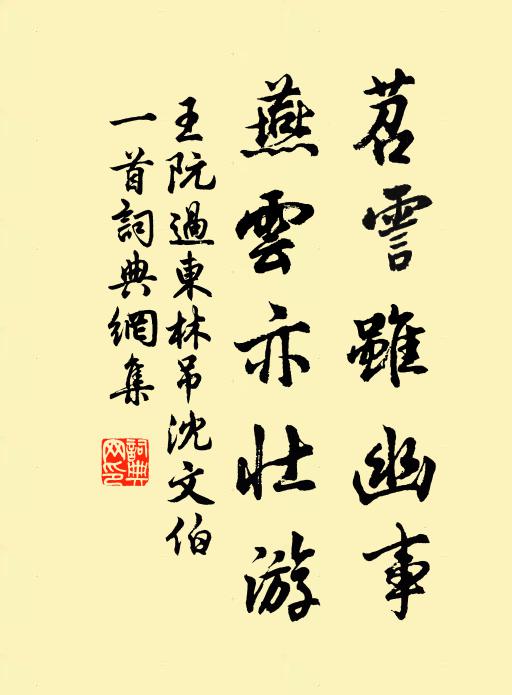 苕霅雖幽事
燕雲亦壯游
王阮過東林吊沈文伯
一首詞典網集
詞典
网印